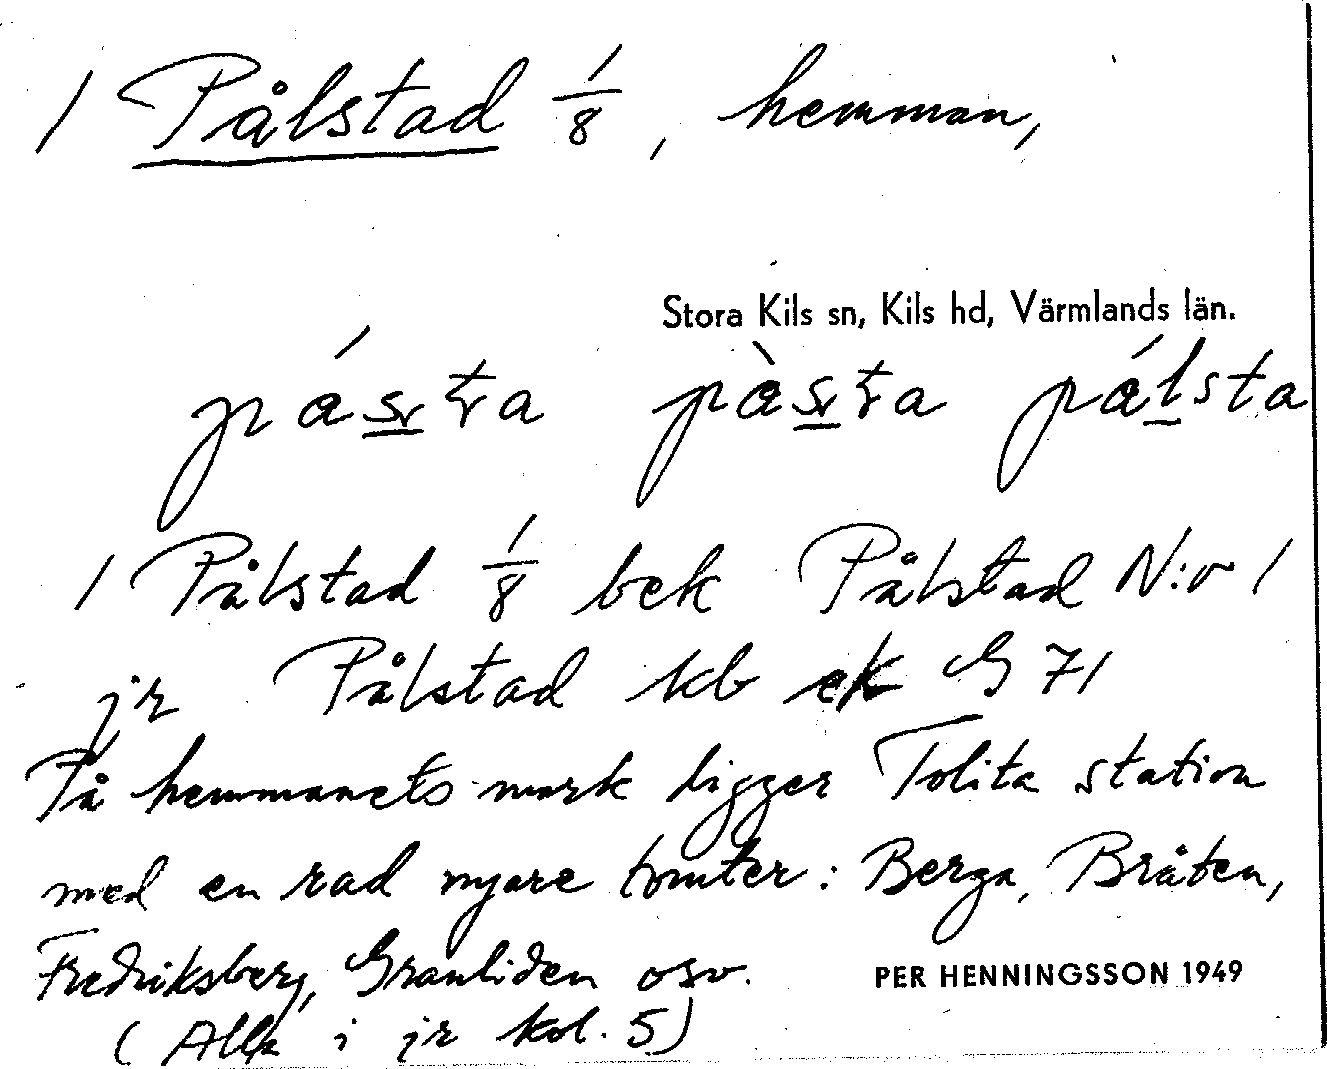 1 Pålstad 1/8, hemman,
Stora Kils sn, Kils hd, Värmlands län.
pålsta
1 Pålstad 1/8 bek Pålstad N:o 1
jr Pålstad kb ek G 71
På hemmanets mark ligger Tolita station
med en rad nyare tomter: Berga, Bråten,
Fredriksberg, Granliden osv.
PER HENNINGSSON 1949
(Alla i jr kol. 5)